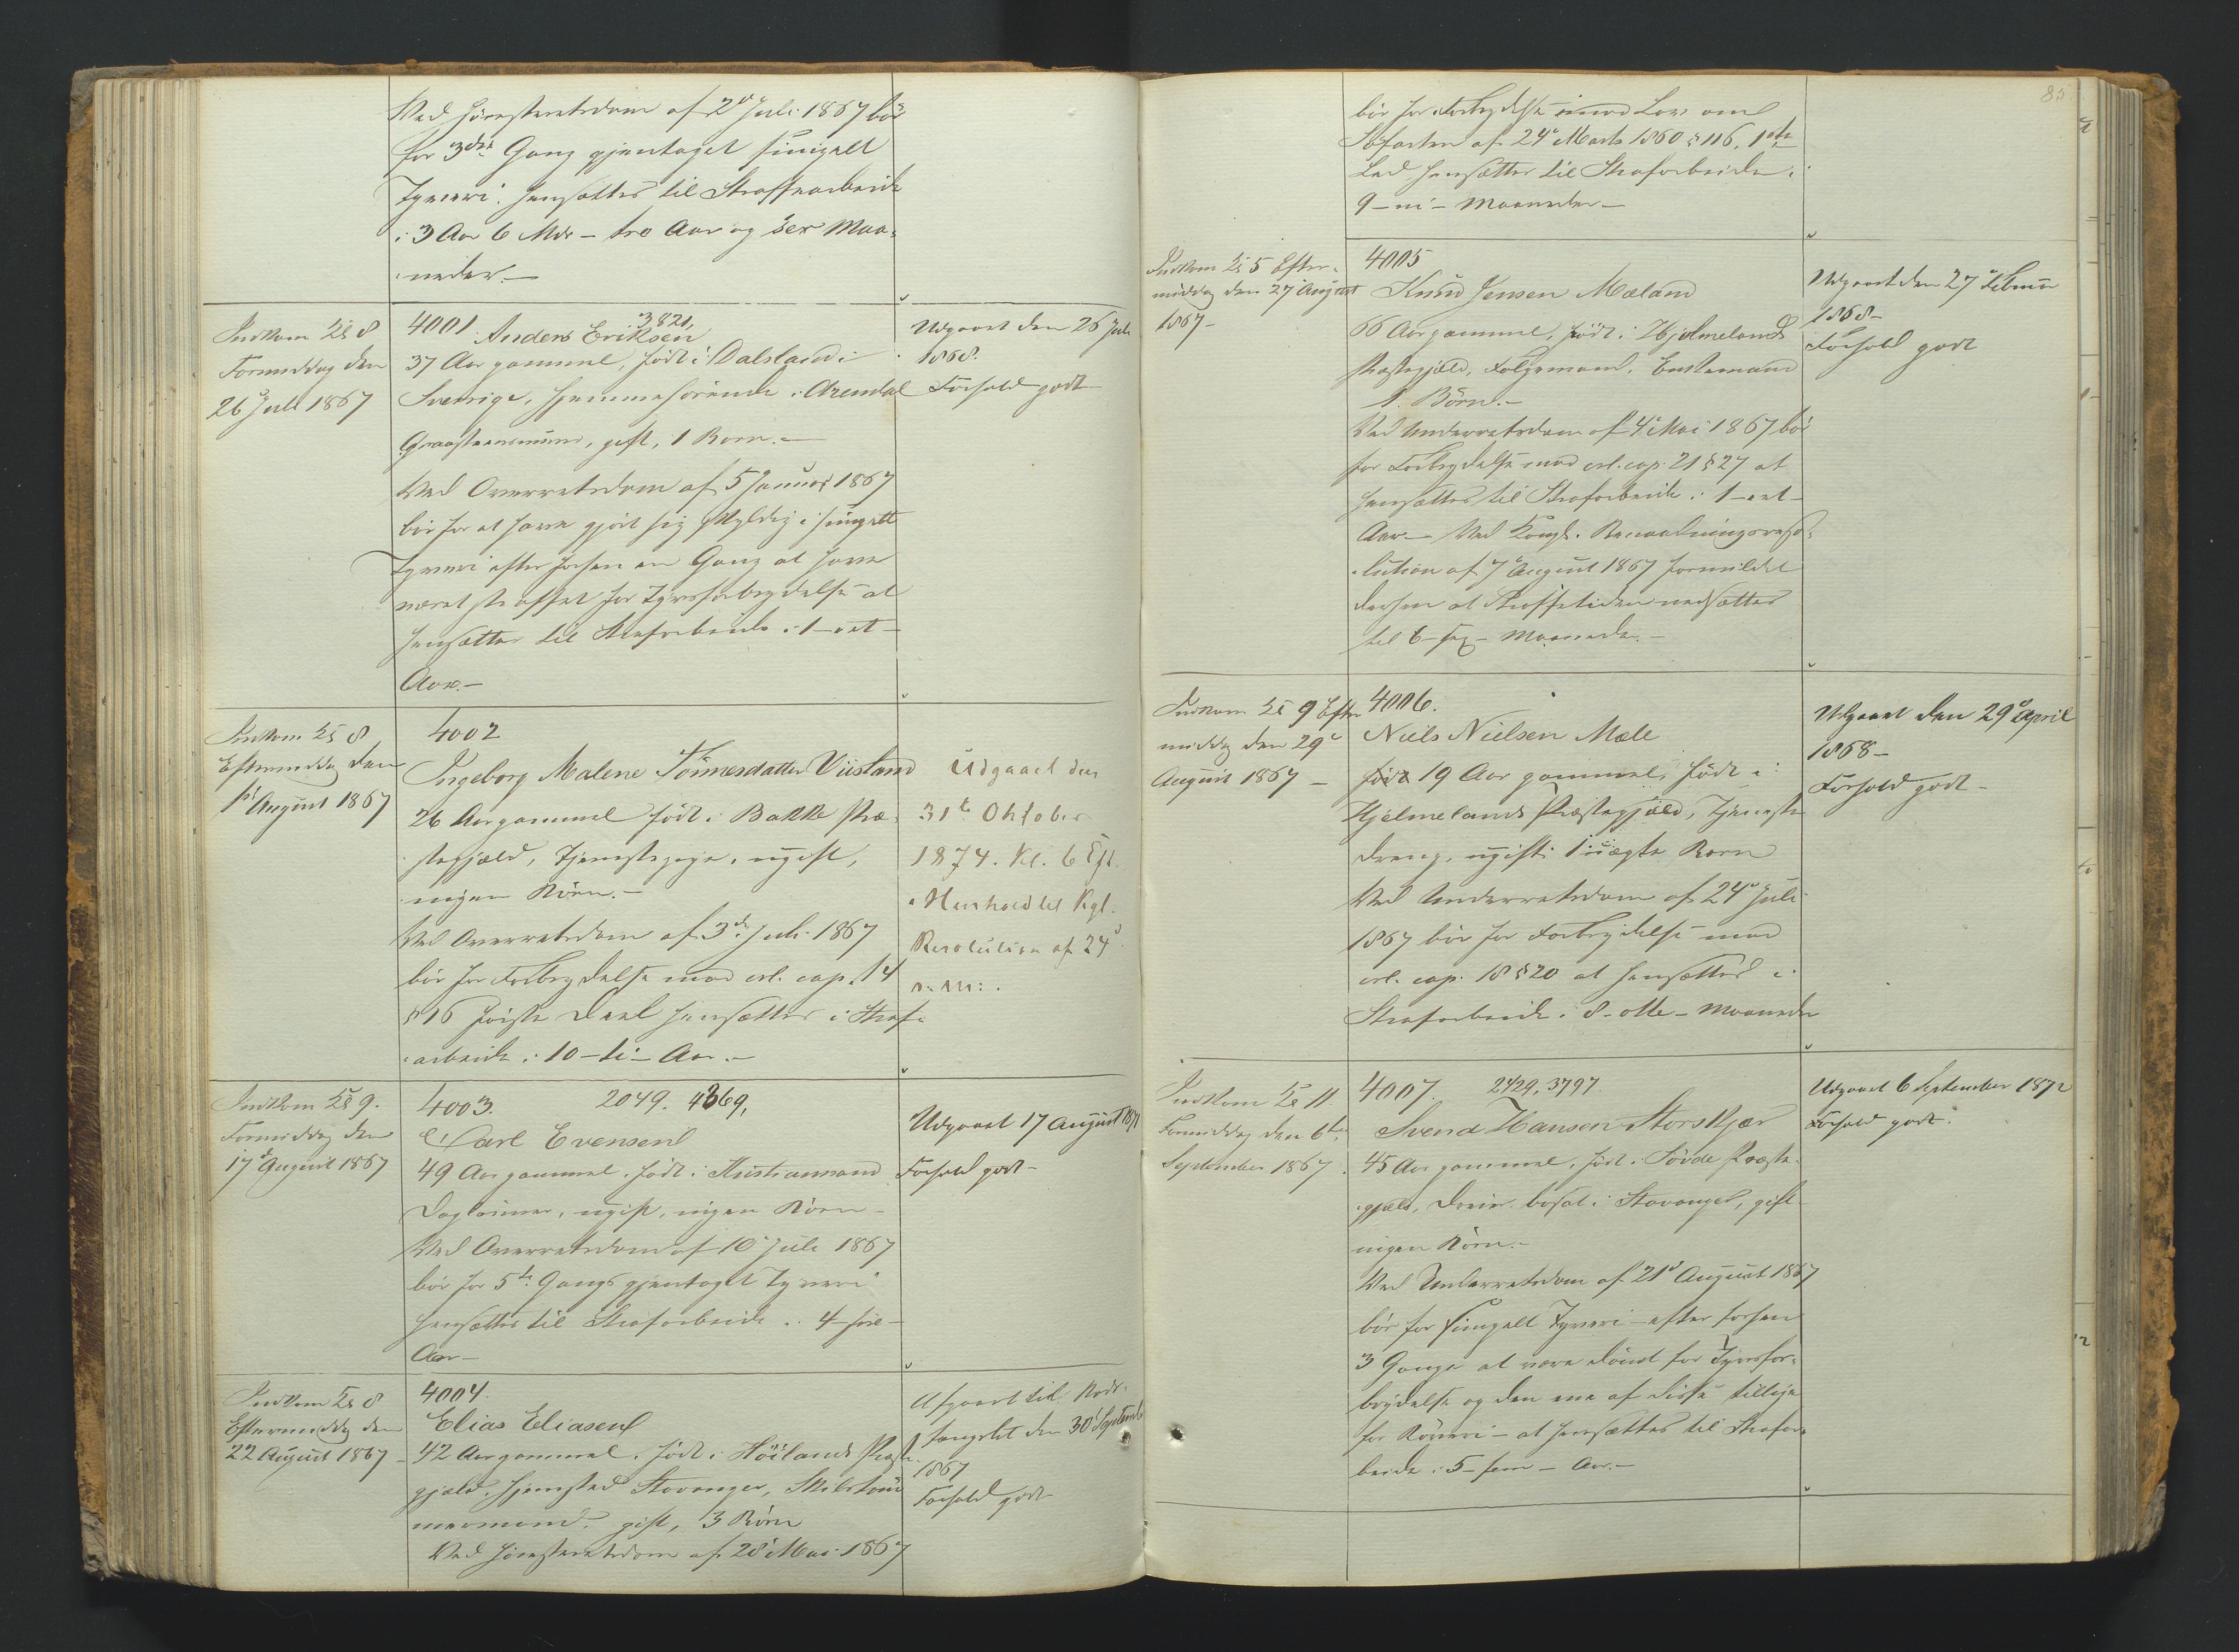 Ved Høiesteretsdom af 2den Juli 1867 bör
for 3die Gang gjentaget simpelt
Tyveri hensættes til Straffearbeide
i 3 Aar 6 Mdr – tre Aar og sex Maa-
neder.–
Indkom Kl 8
Formiddag den
26 Juli 1867
4001. 3821,
Anders Eriksen
37 Aar gammel, født i Dalsland i
Sverrige, hjemmehörende i Arendal
Graasteensminer, gift, 1 Barn.–
Ved Overretsdom af 5 Januar 1867
bör for at have gjört sig skyldig i simpelt
Tyveri efter forhen en Gang at have
været straffet for Tyvsforbrydelse at
hensættes til Strafarbeide i 1 – et –
Aar.–
Udgaaet den 26 Juli
1868.
Forhold godt
Indkom Kl 8
Eftermiddag den
1ste August 1867
4002
Ingeborg Malene Tönnesdatter Viisland
26 Aar gammel født i Bakke Præ-
stegjæld, Tjenestepige, ugift,
ingen Börn.–
Ved Overretsdom af 3die Juli 1867
bör for Forbrydelse mod crl. cap. 14
§ 16 første Deel hensættes i Straf-
arbeide i 10 – ti – Aar.–
Udgaaet den
31te Oktober
1874. Kl. 6 Eft.
i Henhold til Kgl.
Resolution af 24d
s. M.
Indkom Kl 9.
Formiddag den
17d August 1867
4003. 2049. 4369,
Carl Evensen
49 Aar gammel, født i Kristiansand
Daglönner, ugift, ingen Börn –
Ved Overretsdom af 10d Juli 1867
bör for 5te Gangs gjentaget Tyveri
hensættes til Strafarbeide i 4 – fire –
Aar –
Udgaaet 17 August 1871
Forhold godt –
Indkom Kl 8
Eftermiddag den
22 August 1867 –
4004.
Elias Eliasen
42 Aar gammel, født i Höilands Præste-
gjæld, Hjemsted Stavanger, Skibstöm-
mermand, gift, 3 Börn
Ved Høiesteretsdom af 28d Mai 1867
Afgaaet til Bods-
fængslet den 30d September
1867
Forhold godt
85
bör for Forbrydelse imod Lov om
Söfarten af 24d Marts 1860 § 116, 1ste
Led hensættes til Strafarbeide i
9 – ni – Maaneder –
Indkom Kl 5 Efter-
middag den 27 August
1867 –
4005
Knud Jensen Mæland
66 Aar gammel, født i Hjelmelands
Præstegjæld, Følgemand, Enkemand
1. Börn.–
Ved Underretsdom af 4de Mai 1867 bör
for Forbrydelse mod crl. cap. 21 § 27 at
hensættes til Strafarbeide i 1 – eet –
Aar.– Ved Kongl. Benaadningsreso-
lution af 7d August 1867 formildet
derhen at Straffetiden nedsættes
til 6 – sex – Maaneder.–
Udgaaet den 27d Februar
1868 –
Forhold godt
Indkom Kl 9 Efter-
middag den 29d
August 1867 –
4006.
Niels Nielsen Mæle
født 19 Aar gammel, født i
Hjelmelands Præstegjæld, Tjeneste-
dreng, ugift, 1 uægte Barn
Ved Underretsdom af 24d Juli
1867 bör for Forbrydelse mod
crl. cap. 18 § 20 at hensættes i
Strafarbeide i 8 – otte – Maaneder
Udgaaet den 29d April
1868 –
Forhold godt –
Indkom Kl 11
Formiddag den 6te
September 1867.
4007. 2429, 3797
Svend Hansen Storskjær
45 Aar gammel, født i Søvde Præste-
gjæld, Dreier, bosat i Stavanger, gift
ingen Börn.–
Ved Underretsdom af 21d August 1867
bör for simpelt Tyveri – efter forhen
3 Gange at være dömt for Tyvsfor-
brydelse og den ene af disse tillige
for Röveri – at hensættes til Strafar-
beide i 5 – fem – Aar.–
Udgaaet 6 September 1872
Forhold godt.